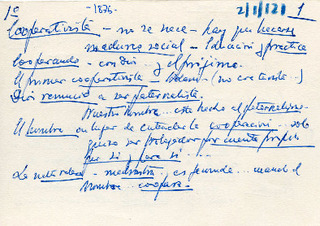 1º -1876- 2/11/121 1
Cooperativista - no se nace - hay que hacerse
madurez social - Educación y práctica
Cooperando - con dios... y el prójimo.
El primer cooperativista - (no creciste...)
Dios renunció a ser paternalista.
Nuestro hombre.. está hecho al paternalismo.
El hombre en lugar de entenderse cooperación.. solo
piensa ser protegido por cuenta propia
por si y para si ....
La naturaleza - madrastra.. es fecunda.. cuando el
hombre.. coopera.-